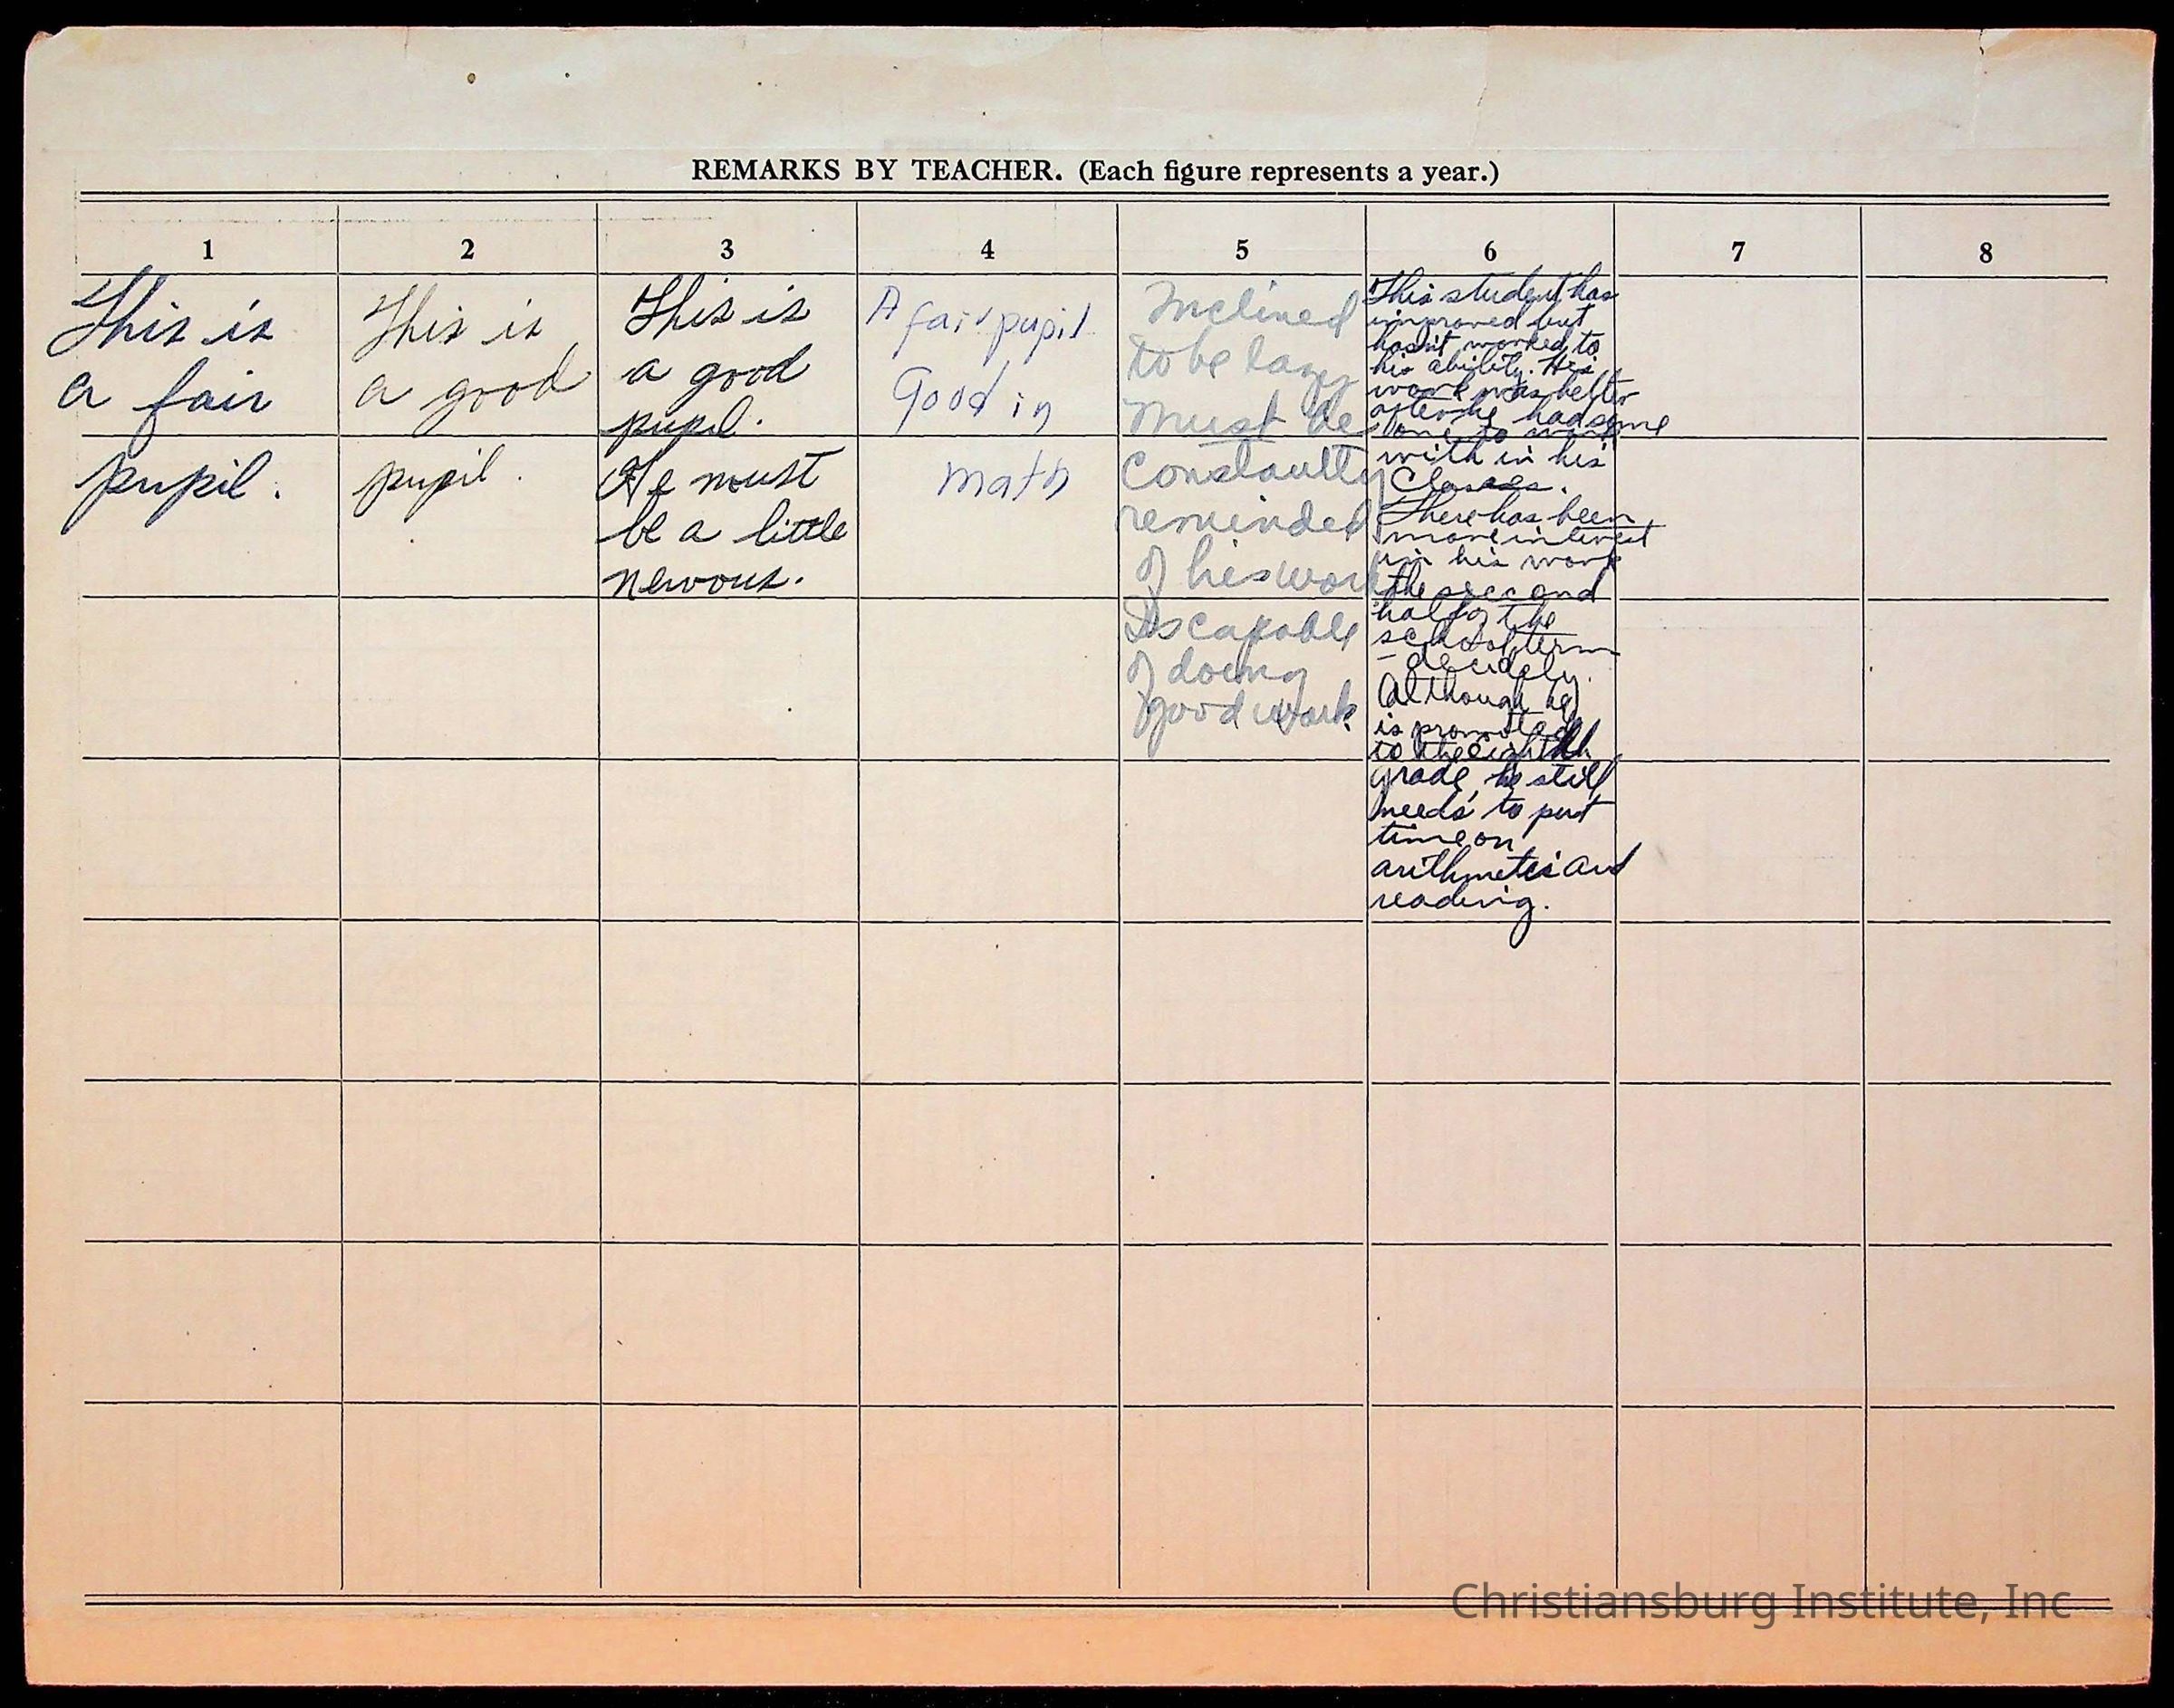 REMARKS BY TEACHER. (Each figure represents a year.)
1
This is
a fair
pupil.
2
This is
a good
pupil.
3
This is
a good
pupil.
He must
be a little
nervous.
4
A fair pupil
Good in
math
5
Inclined
to be lazy
Must be
constautly
reminded
of his work
Is capable
of doing
good work.
6
This student has
improved but
hasn't worked to
his ability. His
work was better
after he had some
one to work
with in his
Classes.
There has been
more interest
in his work
the second
half of the
school term
- decidely.
Although he
is promoted
to the eighth
grade, he still
needs to put
time on
arithmetic and
reading.
7
8
Christiansburg Institute, Inc